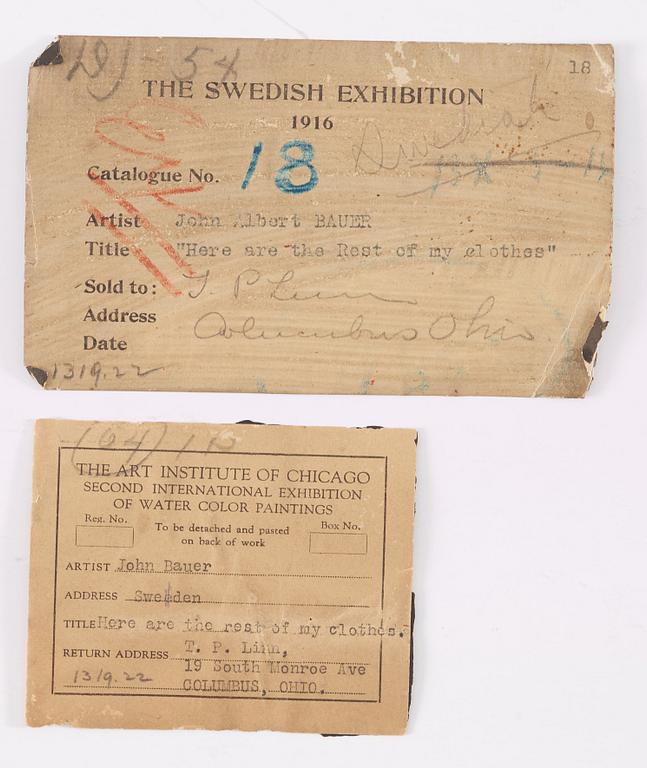 18
THE SWEDISH EXHIBITION
1916
Swedish
Catalogue No. 18
Artist John Albert BAUER
Title "Here are the Rest of my clothes"
Sold to: T. P Linn
Address Columbus Ohio.
Date
1319.22
THE ART INSTITUTE OF CHICAGO
SECOND INTERNATIONAL EXHIBITION
OF WATER COLOR PAINTINGS
Reg. No.
Box No.
To be detached and pasted
on back of work
ARTIST John Bauer
ADDRESS Sweeden
TITLE Here are the rest of my clothes.
RETURN ADDRESS T. P. Linn,
19 South Monroe Ave
COLUMBUS, OHIO.
1319.22